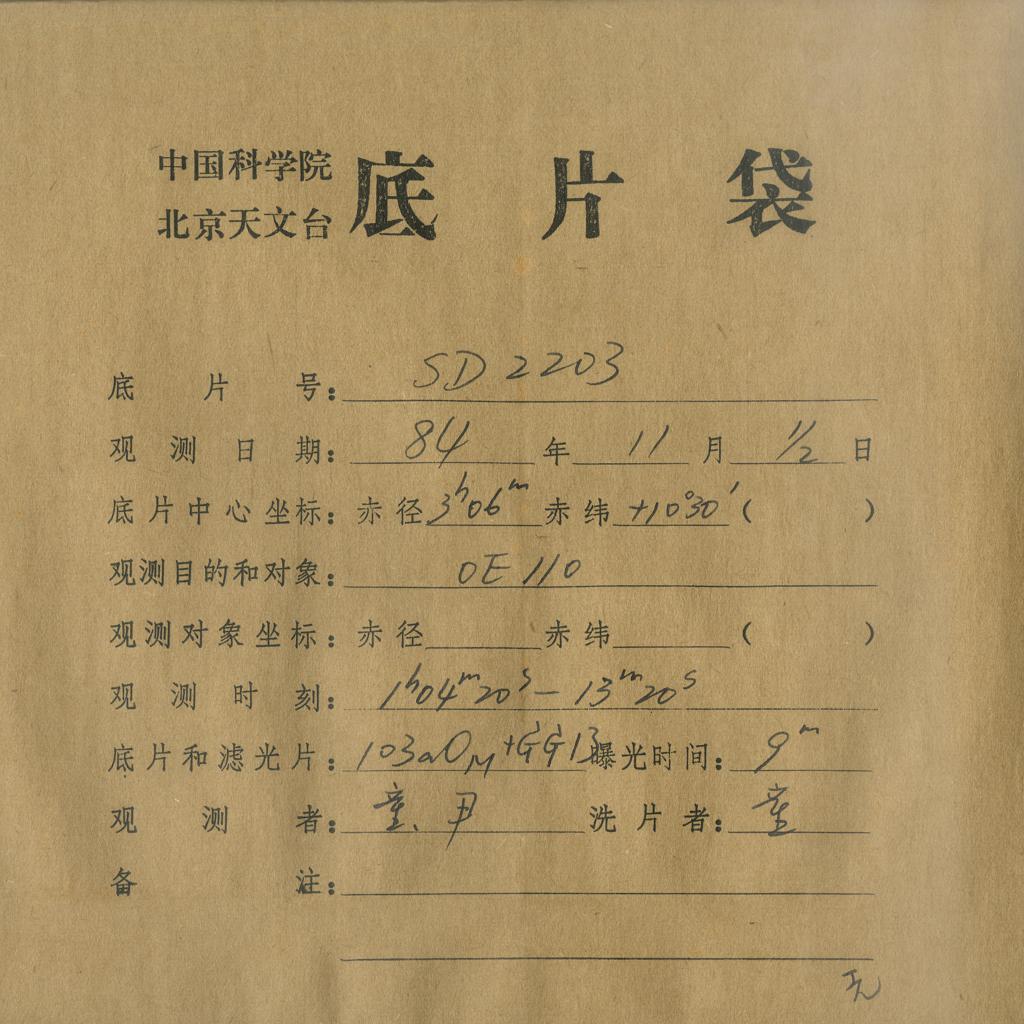 中国科学院
北京天文台
底片袋
底片号：SD 2203
观测日期：84年11月1/2日
底片中心坐标：赤径3h06m赤纬+10°30′（ ）
观测目的和对象：OE 110
观测对象坐标：赤径 赤纬 （ ）
观测时刻：1h04m20s — 13m20s
底片和滤光片：103aOM+GG13 曝光时间：9m
观测者：童、尹 洗片者：童
备注：